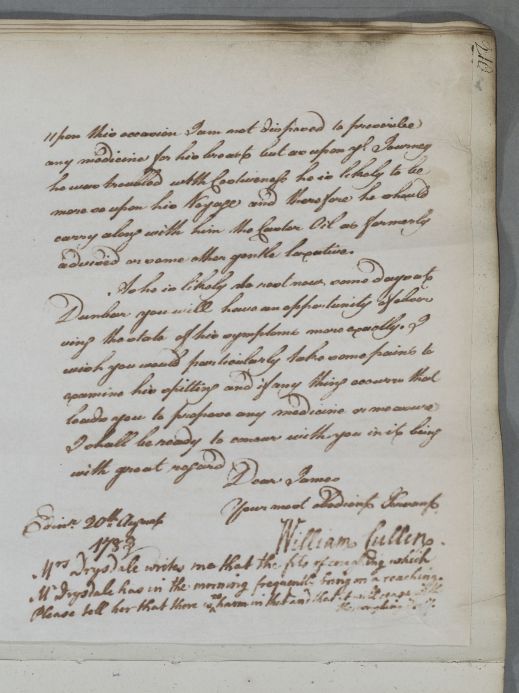 240
upon this occasion I am not disposed to prescribe
any medicine for his breast but as upon ys. Journey
he was troubled with Costiveness he is likely to be
more so upon his Voyage and therefore he should
carry along with him the Castor Oil as formerly
advised or some other gentle laxative.
As he is likely to rest now some days at
Dunbar you will have an opportunity of obser
ving the state of his symptoms more exactly. I
wish you would particularly take some pains to
examine his spitting and if any thing occurrs that
leads you to propose any medicine or measure
I shall be ready to concur with you in it being
with great regard
Dear James
Your most obedient Servant
William Cullen.
Edinr. 20th August
178
Mrs Drysdale writes me that the fits of coughing which
Mr Drysdale has in the morning frequently bring on a reaching.
Please tell her that there no harm in that and that it will cease
the coughing